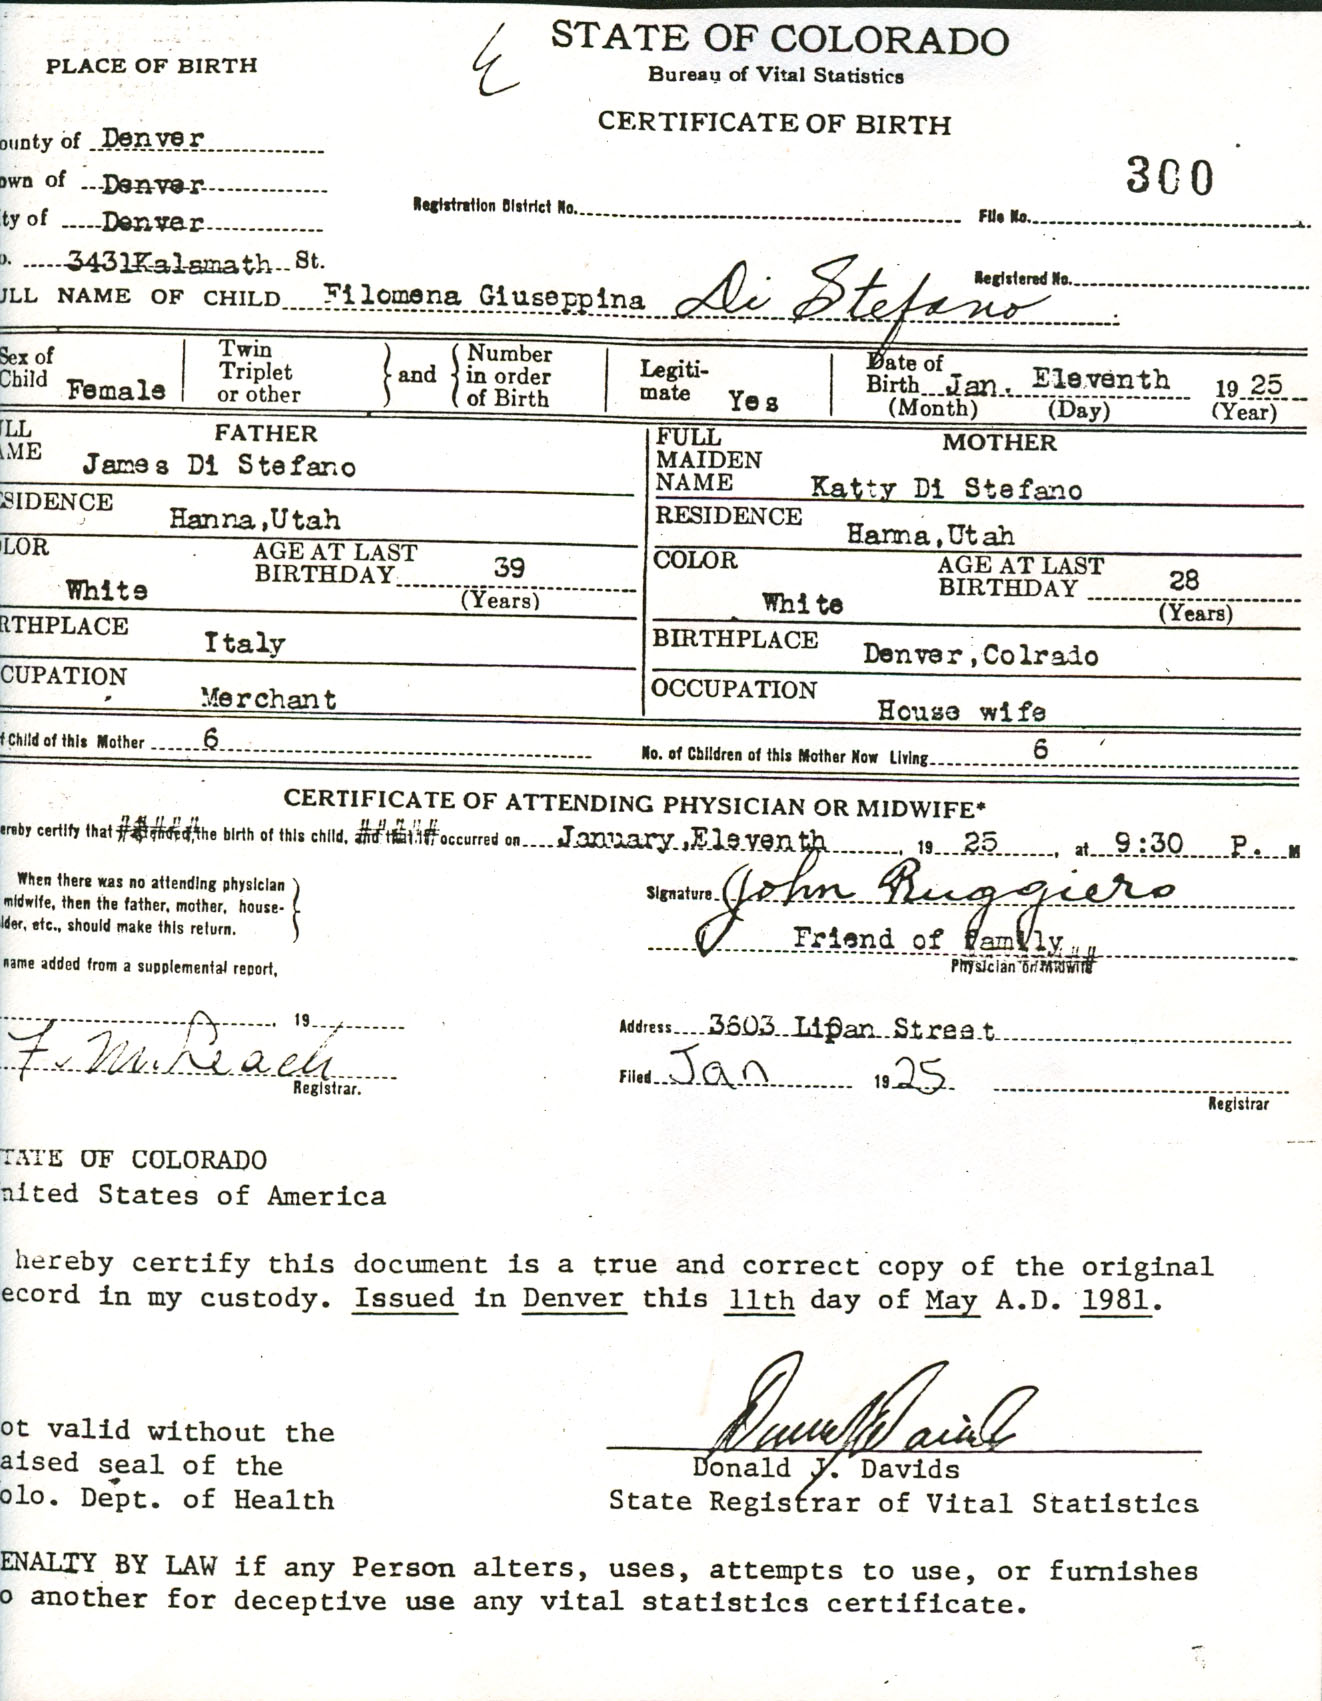 STATE OF COLORADO
Bureau of Vital Statistics
CERTIFICATE OF BIRTH
PLACE OF BIRTH
ounty of Denver
own of Denver
ty of Denver
o. 3431Kalamath St.
300
Registration District No. File No.
Registered No.
ULL NAME OF CHILD Filomena Giuseppina Di Stefano
Sex of Child Female
Twin Triplet or other } and { Number in order of Birth
Legiti-mate Yes
Date of Birth Jan. Eleventh 19 25
(Month) (Day) (Year)
ULL AME FATHER
James Di Stefano
FULL MAIDEN NAME MOTHER
Katty Di Stefano
SIDENCE Hanna,Utah
RESIDENCE Hanna,Utah
LOR White AGE AT LAST BIRTHDAY 39 (Years)
COLOR White AGE AT LAST BIRTHDAY 28 (Years)
RTHPLACE Italy
BIRTHPLACE Denver,Colrado
CUPATION Merchant
OCCUPATION House wife
f Child of this Mother 6 No. of Children of this Mother Now Living 6
CERTIFICATE OF ATTENDING PHYSICIAN OR MIDWIFE*
ereby certify that the birth of this child, occurred on January,Eleventh, 19 25, at 9:30 P. M
When there was no attending physician
midwife, then the father, mother, house-
lder, etc., should make this return.
Signature John Ruggiero
Friend of family
Physician or Midwife
name added from a supplemental report,
19
F. M. Leach
Registrar.
Address 3603 Lipan Street
Filed Jan 19 25
Registrar
TATE OF COLORADO
nited States of America
hereby certify this document is a true and correct copy of the original
ecord in my custody. Issued in Denver this 11th day of May A.D. 1981.
ot valid without the
aised seal of the
olo. Dept. of Health
Donald J. Davids
State Registrar of Vital Statistics
ENALTY BY LAW if any Person alters, uses, attempts to use, or furnishes
o another for deceptive use any vital statistics certificate.